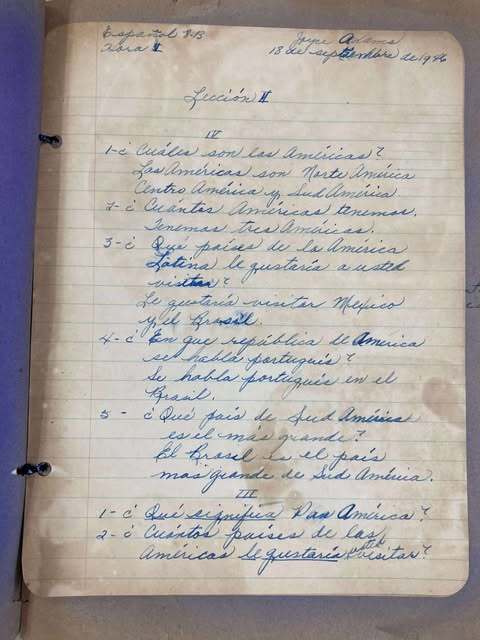 Español 7-B Joyce Adams
Hora I 18 de septiembre de 1946
Lección II
IV
1-¿ Cuáles son las Américas?
Las Américas son Norte América
Centro América y Sud América
2-¿ Cuántas Américas tenemos.
Tenemos tres Américas.
3-¿ Qué países de la América
Latina le gustaría a usted
visitar?
Le gustaría visitar Mexico
y el Brasil.
4-¿ En que república de America
se habla portugués?
Se habla portugués en el
Brasil.
5-¿ Qué país de Sud América
es el más grande?
El Brasil es el país
mas grande de Sud América.
III
1-¿ Qué significa Pan América?
2-¿ Cuántos países de las
Américas le gustaría usted visitar?